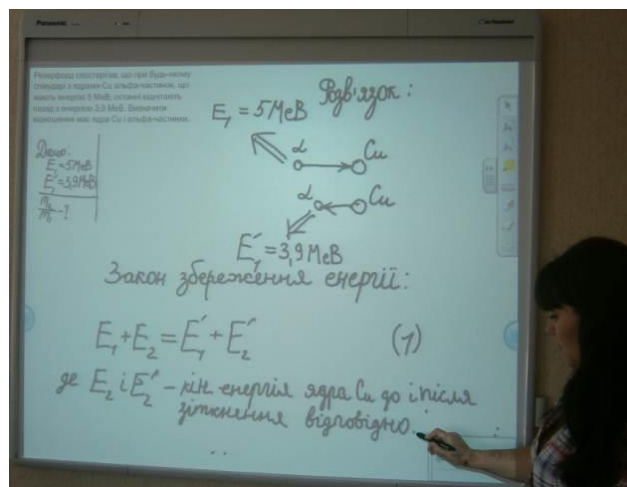 Panasonic
Резерфорд спостерігав, що при будь-якому
співударі з ядрами Cu альфа-частинок, що
мають енергію 5 МеВ, останні відлітають
назад з енергією 3,9 МеВ. Визначити
відношення мас ядра Cu і альфа-частинки.
Розв'язок:
E₁ = 5 МеВ
Дано:
E₁=5МеВ
E₁′=3,9МеВ
α Cu
α Cu
E₁′=3,9МеВ
Закон збереження енергії:
E₁+E₂=E₁′+E₂′ (1)
де E₂ і E₂′ – кін. енергія ядра Cu до і після
зіткнення відповідно.